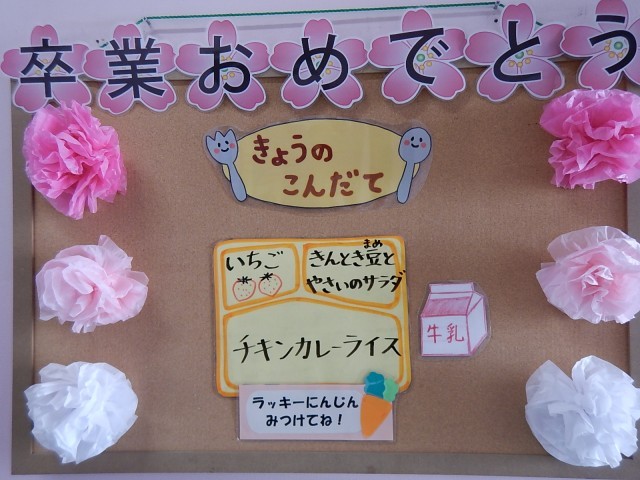 卒業おめでとう
きょうの
こんだて
いちご
きんとき豆と
まめ
やさいのサラダ
チキンカレーライス
牛乳
ラッキーにんじん
みつけてね！